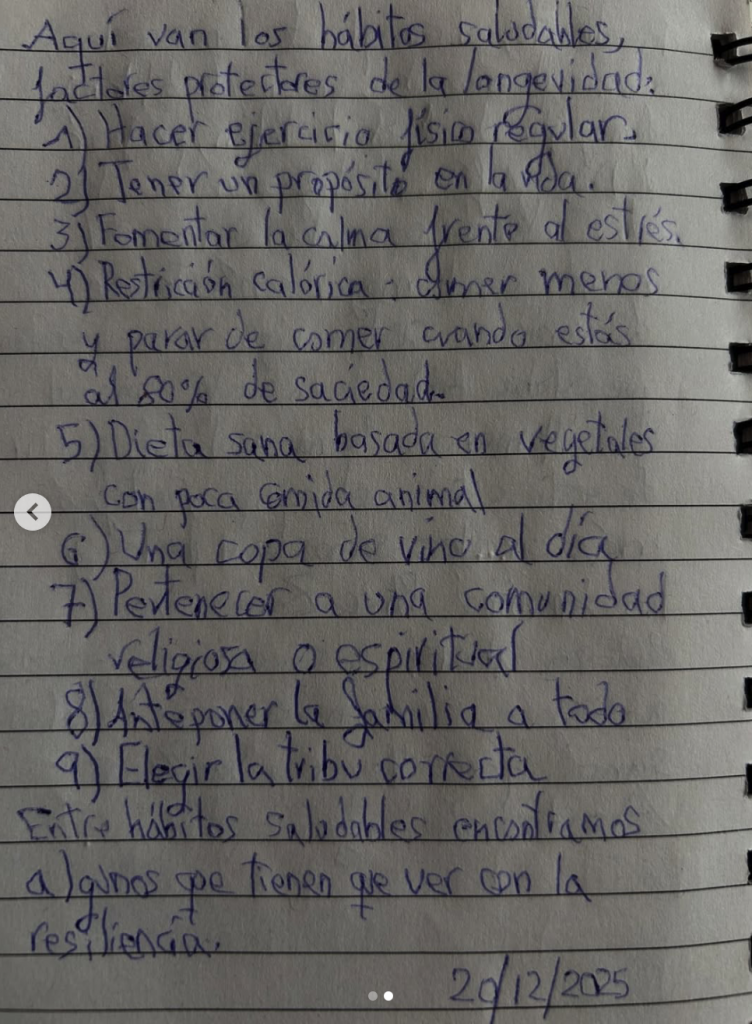 Aquí van los hábitos saludables,
factores protectores de la longevidad:
1) Hacer ejercicio físico regular.
2) Tener un propósito en la vida.
3) Fomentar la calma frente al estrés.
4) Restricción calórica: comer menos
y parar de comer cuando estás
al 80% de saciedad.
5) Dieta sana basada en vegetales
con poca comida animal
6) Una copa de vino al día
7) Pertenecer a una comunidad
religiosa o espiritual
8) Anteponer la familia a todo
9) Elegir la tribu correcta
Entre hábitos saludables encontramos
algunos que tienen que ver con la
resiliencia.
20/12/2025